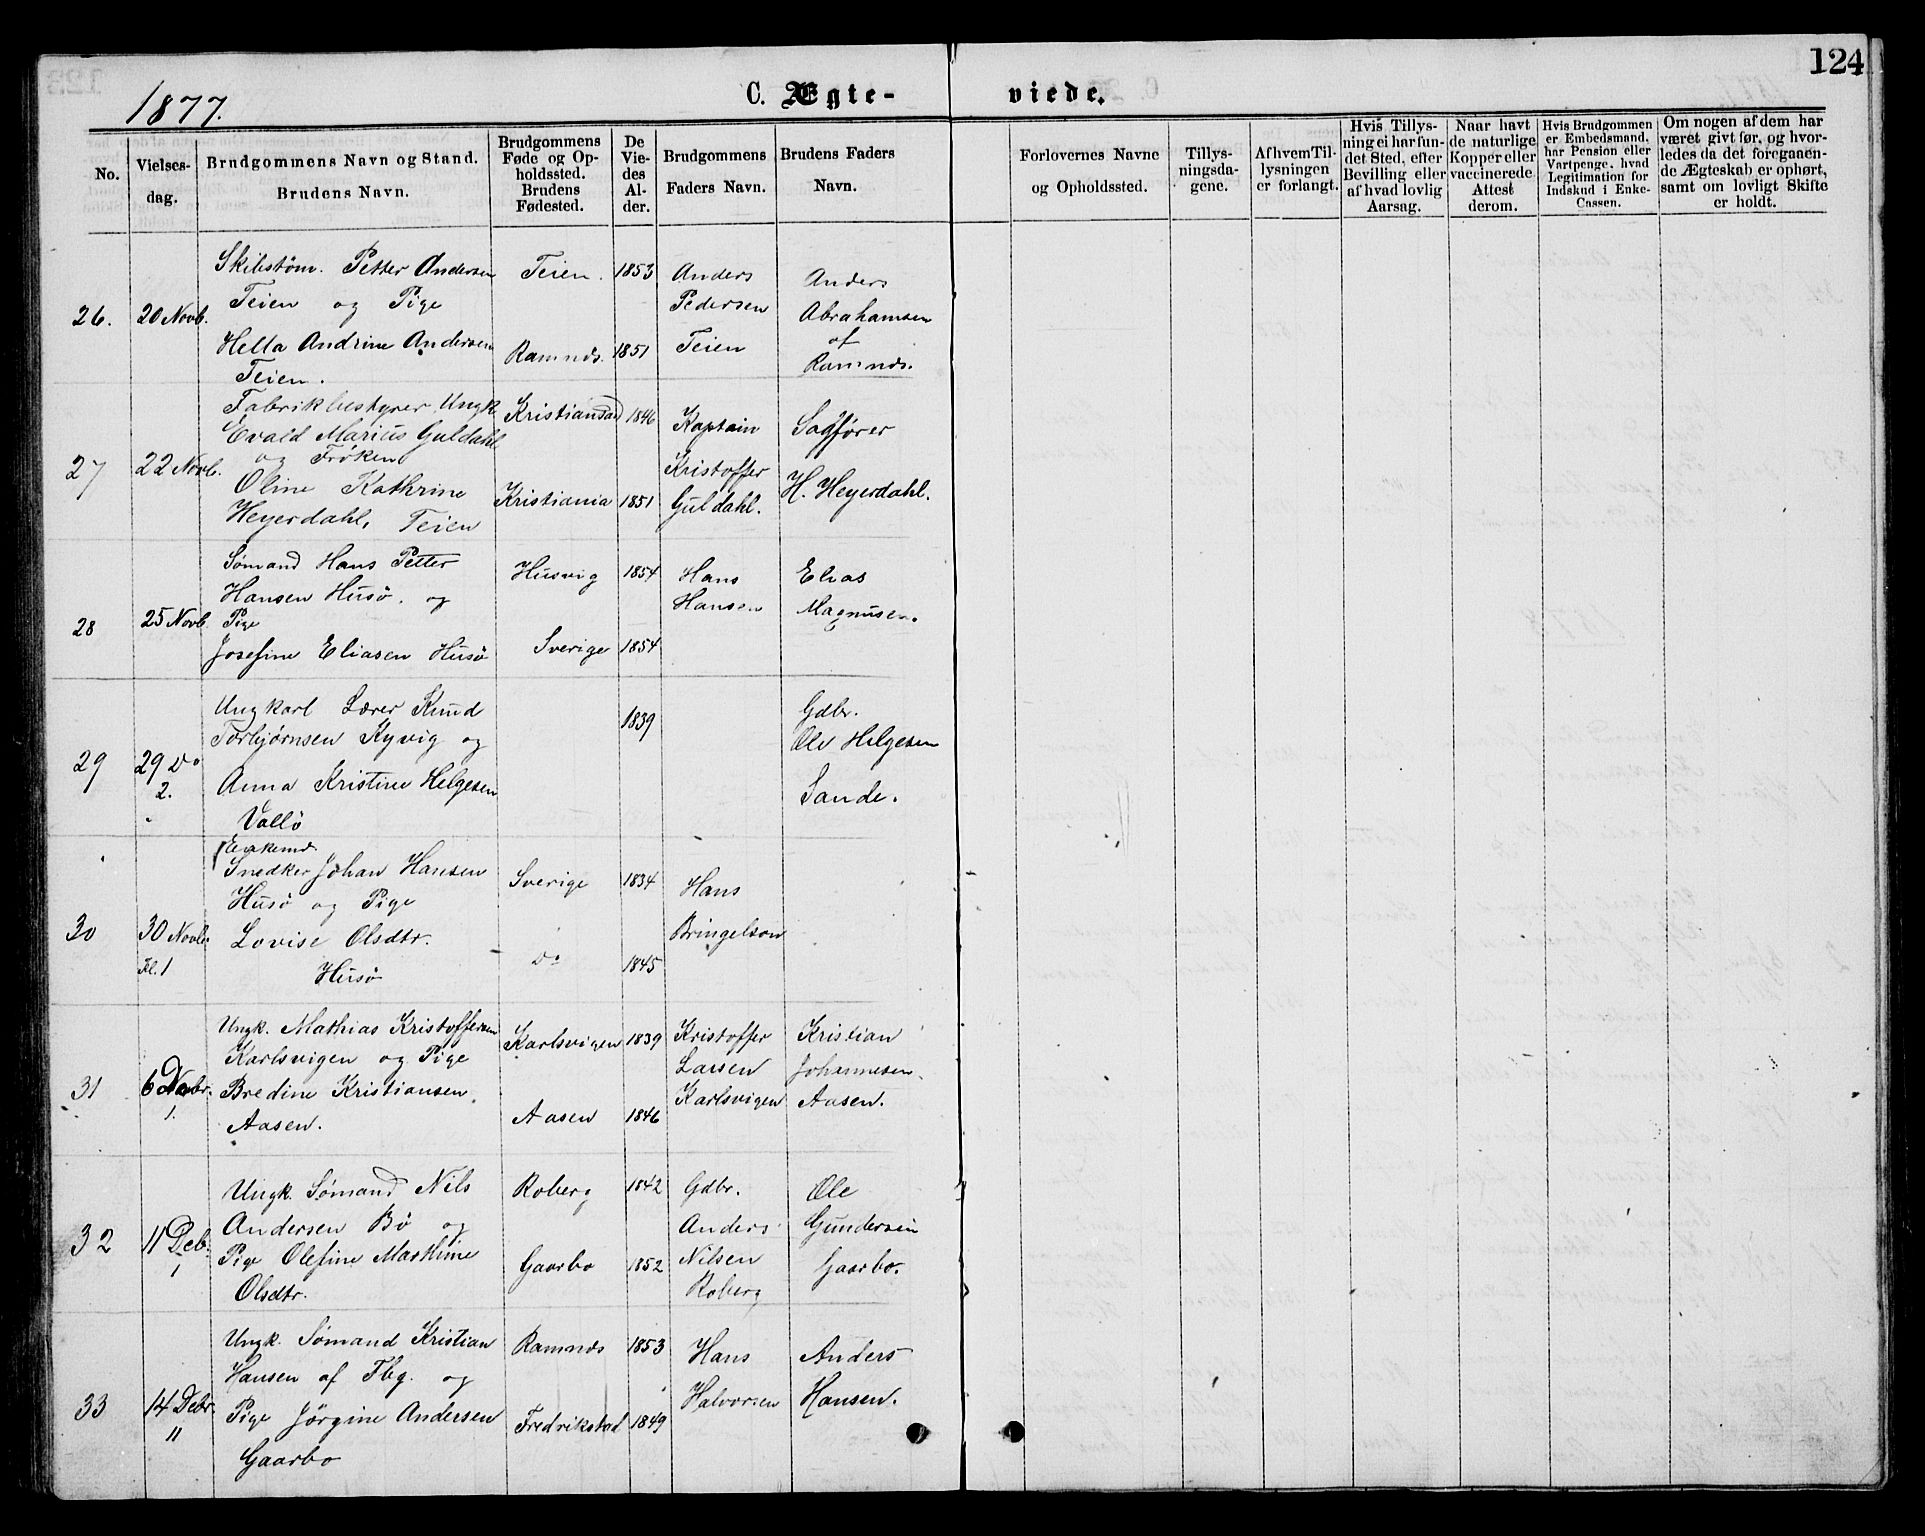 124
1877.
C. Ægte-
viede.
No.
Vielses-
dag.
Brudgommens Navn og Stand.
Brudens Navn.
Brudgommens
Føde og Op-
holdssted.
Brudens
Fødested.
De
Vie-
des
Al-
der.
Brudgommens
Faders Navn.
Brudens Faders
Navn.
Forlovernes Navne
og Opholdssted.
Tillys-
ningsda-
gene.
Af hvem Til-
lysningen
er forlangt.
Hvis Tillys-
ning ei har fun-
det Sted, efter
Bevilling eller
af hvad lovlig
Aarsag.
Naar havt
de naturlige
Kopper eller
vaccinerede
Attest
derom.
Hvis Brudgommen
er Embedsmand,
har Pension eller
Vartpenge, hvad
Legitimation for
Indskud i Enke-
Cassen.
Om nogen af dem har
været givt før, og hvor-
ledes da det foregaaen-
de Ægteskab er ophørt,
samt om lovligt Skifte
er holdt.
26.
20 Novb.
Skibstøm. Petter Andersen
Teien og Pige
Hella Andrine Andersen
Teien.
Teien.
Ramnds.
1853
1851
Anders
Pedersen
Teien
Anders
Abrahamsen
af
Ramnds.
27
22 Novb.
Fabrikbestyrer, Ungk.
Evald Marius Guldahl
og Frøken
Oline Kathrine
Heyerdahl, Teien
Kristiansand
Kristiania
1846
1851
Kaptain
Kristoffer
Guldahl.
Sagfører
H. Heyerdahl.
28
25 Novb.
Sømand Hans Petter
Hansen Husø. og
Pige
Josefine Eliasen Husø
Husvig
Sverige
1854
1854
Hans
Hansen
Elias
Magnusen.
29
29 Do
2.
Ungkarl Lærer Knud
Torbjørnsen Kyvig og
Anna Kristine Helgesen
Vallø
1839
Gdbr.
Ole Helgesen
Sande.
30
30 Novbr
Kl. 1
Enkemd.
Snedker Johan Hansen
Husø og Pige
Lovise Olsdtr.
Husø
Sverige
do
1834
1845
Hans
Bringelson
31
6 Debr.
1.
Ungk. Mathias Kristoffersen
Karlsvigen og Pige
Bredine Kristiansen.
Aasen.
Karlsvigen
Aasen
1839
1846
Kristoffer
Larsen
Karlsvigen
Kristian
Johannesen
Aasen.
32
11 Deb.
1
Ungk. Sømand Nils
Andersen Bø og
Pige Olefine Marthine
Olsdtr.
Roberg
Gaarbo
1842
1852
Gdbr.
Anders
Nilsen
Roberg
Ole
Gundersen
Gaarbo.
33
14 Debr.
11
Ungk. Sømand Kristian
Hansen af Tbg. og
Pige Jörgine Andersen
Gaarbo
Ramnds
Fredrikstad
1853
1849
Hans
Halvorsen
Anders
Hansen.